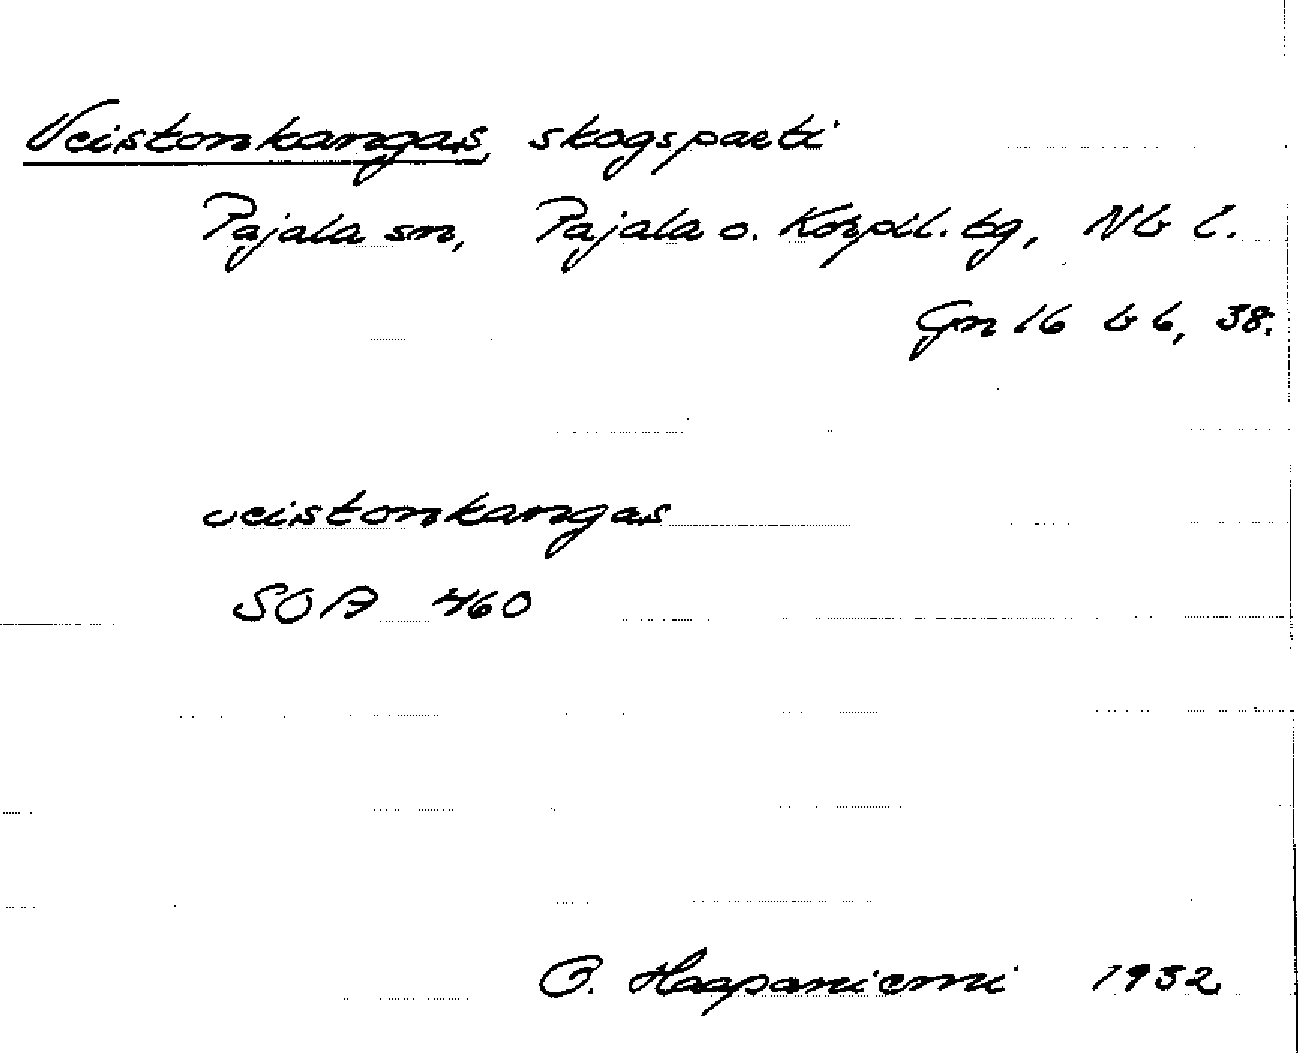 Veistonkangas, skogsparti
Pajala sn, Pajala o. Korpil. tg, Nb l.
Gn 16 b 6, 38.
veistonkangas
SOA 460
B. Haapaniemi 1932